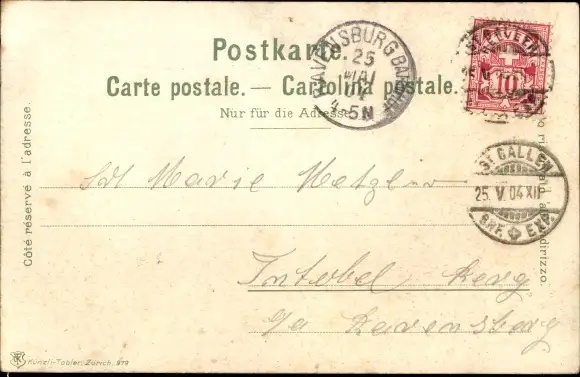 Postkarte.
Carte postale. — Cartolina postale.
Nur für die Adresse
Côté réservé à l'adresse.
RAVENSBURG BAHNHOF
25
MAI
04
4-5N
ST GALLEN
10
ST GALLEN
25. V. 04 XII
BRF. EXP.
d'indirizzo.
Frl Marie Metzler
Intobel Berg
p/a Ravensberg
Künzli-Tobler, Zürich. 979